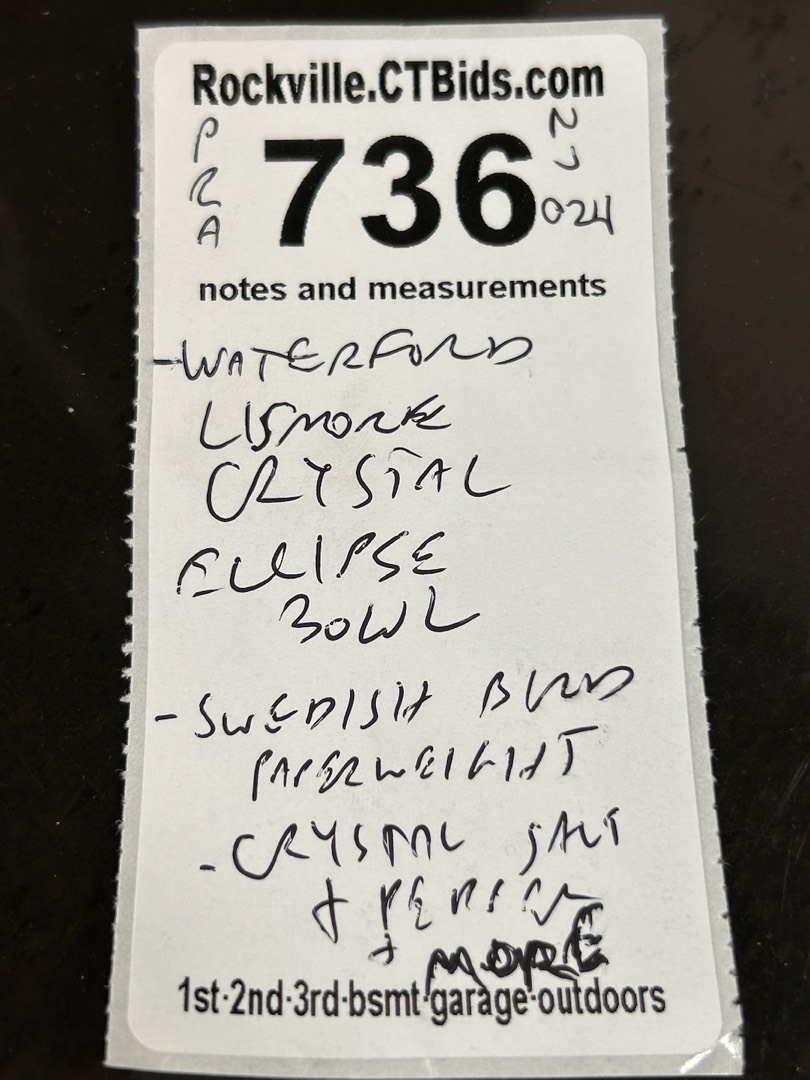 Rockville.CTBids.com
PRA
736
2
7
024
notes and measurements
- WATERFORD
LISMORE
CRYSTAL
ELLIPSE
BOWL
- SWEDISH BIRD
PAPERWEIGHT
- CRYSTAL SALT
+ PEPPER
+ MORE
1st·2nd·3rd·bsmt·garage·outdoors